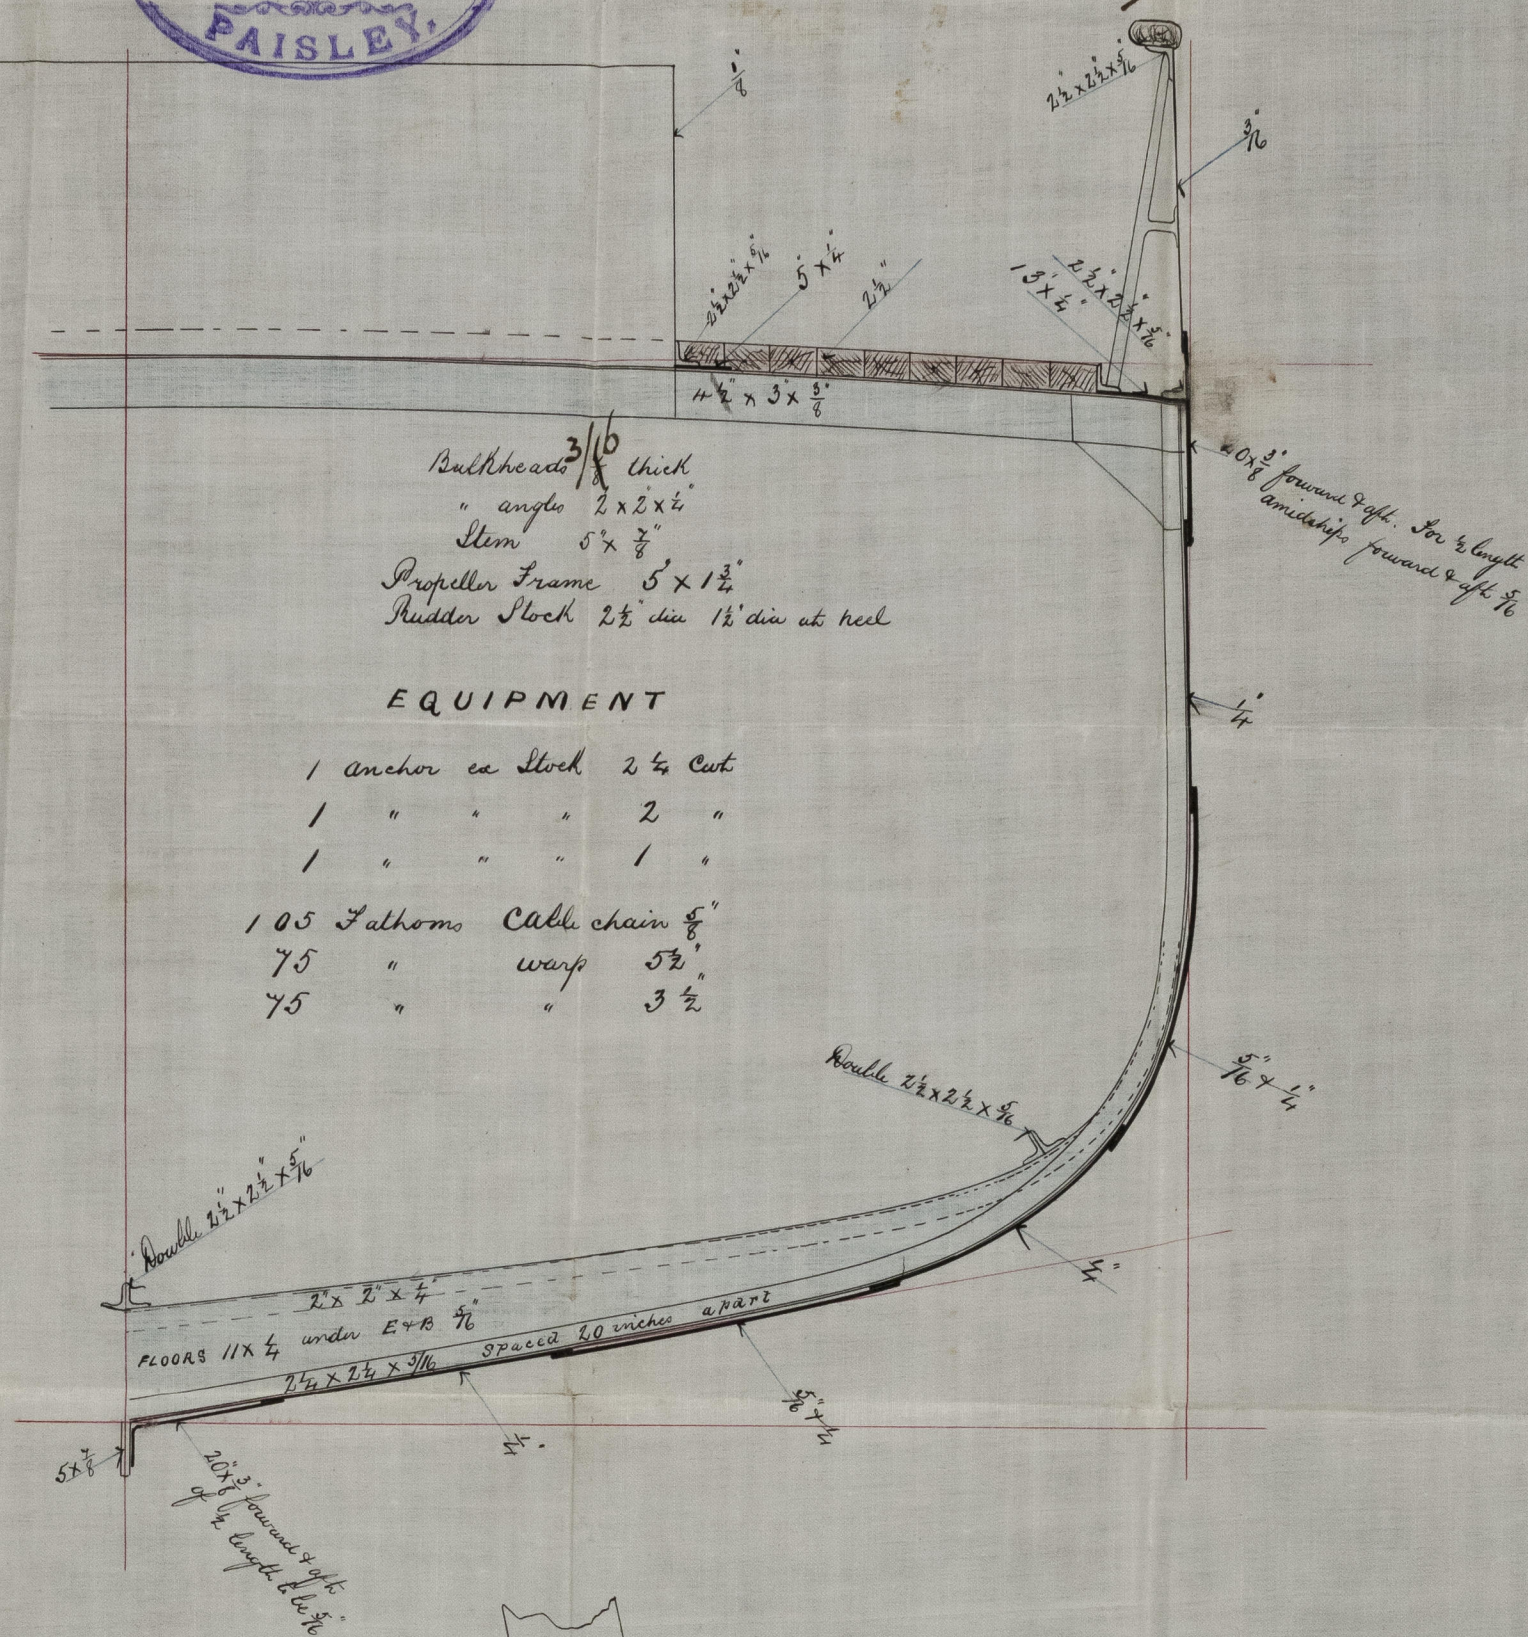 PAISLEY,
1/8"
2½" x 2½" x 5/16"
3/16"
2½" x 2½" x 5/16"
5" x ¼"
2½"
2½" x 2½" x 5/16"
13" x ¼"
4½" x 3" x 3/8"
Bulkheads 3/16 thick
" angles 2" x 2" x ¼"
Stem 5" x 7/8"
Propeller Frame 5" x 1¾"
Rudder Stock 2½" dia 1½" dia at heel
20 x 3/8" forward & aft. For ½ length
amidships forward & aft 5/16
¼"
EQUIPMENT
1 anchor ex Stock 2¼ Cwt
1 " " " 2 "
1 " " " 1 "
105 Fathoms Cable chain 5/8"
75 " warp 5½"
75 " " 3½"
Double 2½ x 2½ x 5/16
5/16" & ¼"
Double 2½" x 2½" x 5/16"
¼"
2" x 2" x ¼"
FLOORS 11 x ¼ under E & B 5/16"
2¼ x 2¼ x 3/16 spaced 20 inches apart
5/16" & ¼
¼"
5 x 7/8
20" x 3/8" forward & aft
of ½ length to be 5/16"